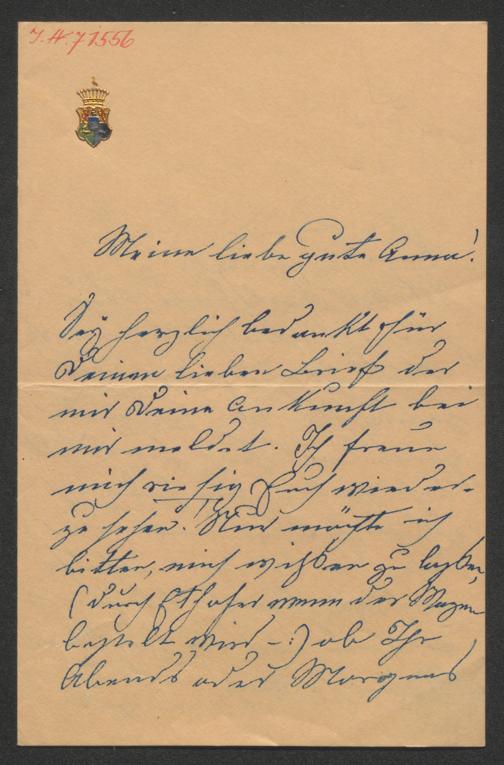 I.N. 71556
Meine liebe gute Anna!
Sey herzlich bedankt für
Deinen lieben Brief der
mir Deine Ankunft bei
mir meldet. Ich freue
mich riesig Euch wieder-
zusehen. Nur möchte ich
bitten, mich wißen zu laßen,
(durch wenn der Wagen
bestellt wird -:) ob Ihr
Abends oder Morgens